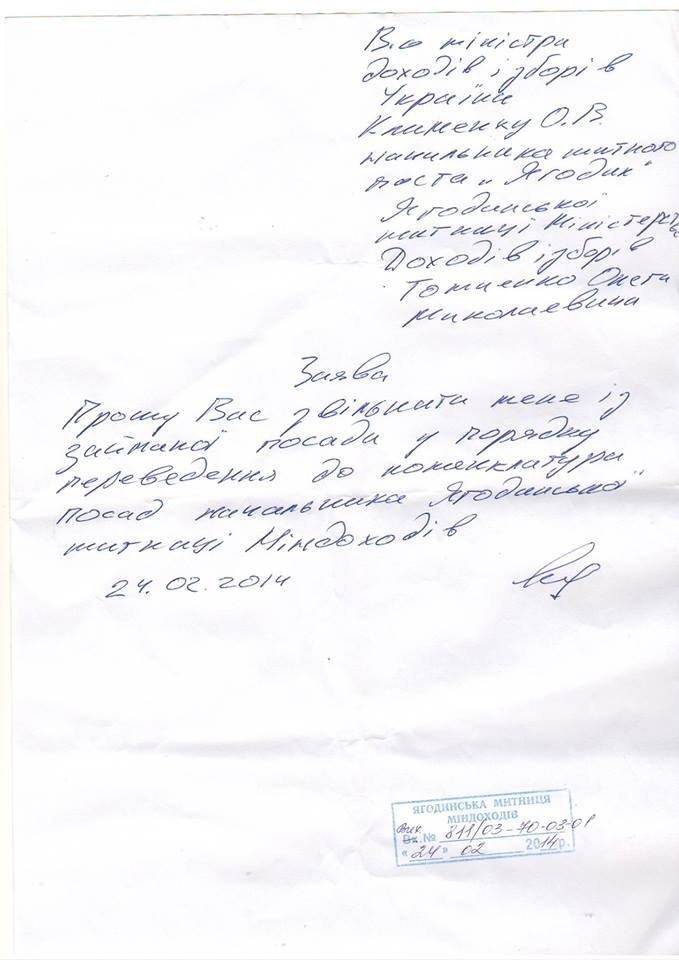 В.о міністра
доходів і зборів
України
Клименку О.В.
начильника митного
поста „Ягодин"
Ягодинської
митниці Міністерства
Доходів і зборів
Томченко Олега
Миколаевича
Заява
Прошу Вас звільнити мене із
займаної посади у порядку
переведення до номенклатури
посад начальника Ягодинської
митниці Міндоходів
24.02.2014
ЯГОДИНСЬКА МИТНИЦЯ
МІНДОХОДІВ
Вик.
Вх. № 811/03-70-03-01
« 24 » 02 2014 р.